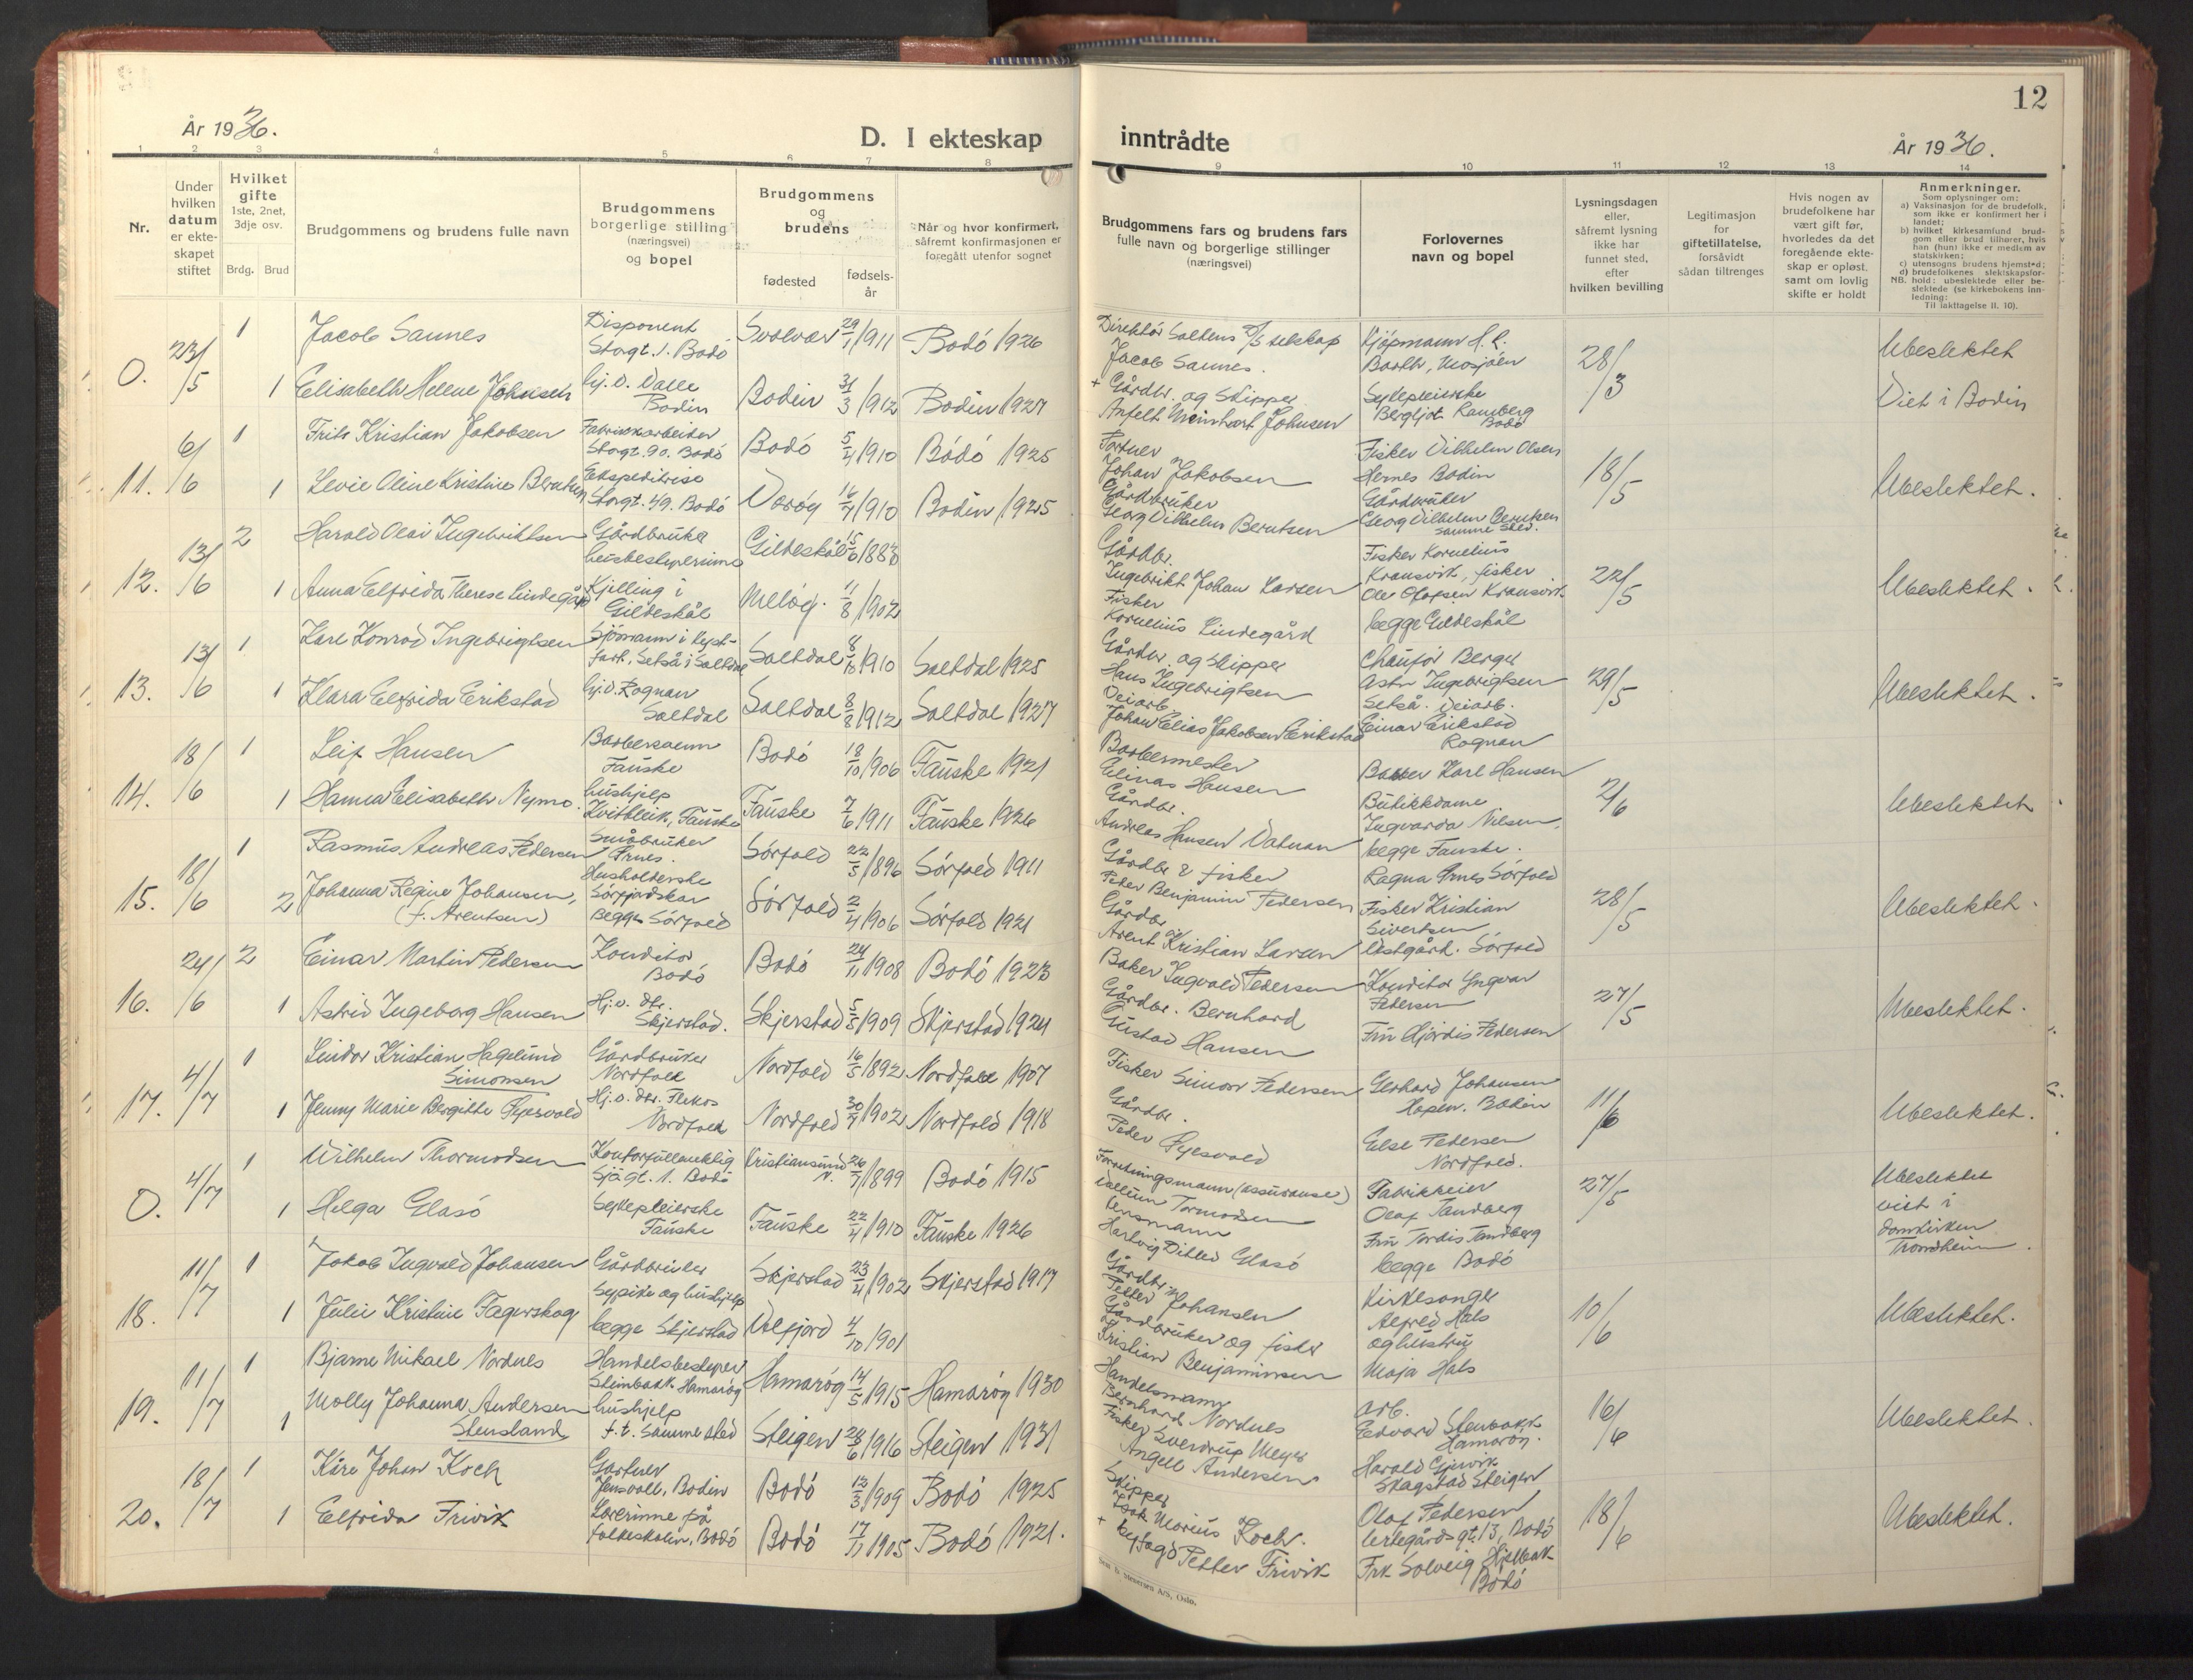 År 1936.
D. I ekteskap
1 2 3 4 5 6 7 8
Nr.
Under hvilken datum er ekteskapet stiftet
Hvilket gifte
1ste, 2net, 3dje osv.
Brdg. Brud
Brudgommens og brudens fulle navn
Brudgommens borgerlige stilling (næringsvei) og bopel
Brudgommens og brudens
fødested
fødselsår
Når og hvor konfirmert, såfremt konfirmasjonen er foregått utenfor sognet
0. 23/5 1 Jacob Sannes Disponent Storgt. 1. Bodö Svolvær 29/1 1911 Bodö 1926
1 Elisabeth Helene Johnsen Hj. d. Valle Bodin Bodin 31/3 1912 Bodin 1927
11. 6/6 1 Frits Kristian Jakobsen Fabrikkarbeider Storgt. 90. Bodö Bodö 5/4 1910 Bodö 1925
1 Levie Oline Kristine Berntsen Ekspeditrise Storgt. 49. Bodö Væröy 16/4 1910 Bodin 1925
12. 13/6 2 Harald Olai Ingebriktsen Gårdbruker Gildeskål 15/6 1883
1 Anna Elfrida Therese Lindegård husbestyrerinne Kjelling i Gildeskål Melöy 11/8 1902
13. 13/6 1 Karl Konrad Ingebrigtsen Sjömann i kystfart, Setså i Saltdal Saltdal 8/10 1910 Saltdal 1925
1 Klara Elfrida Erikstad hj. d. Rognan Saltdal Saltdal 8/8 1912 Saltdal 1927
14. 18/6 1 Leif Hansen Barbersvenn Fauske Bodö 18/10 1906 Fauske 1921
1 Hanna Elisabeth Nymo hushjelp Kvitbleik, Fauske Fauske 7/6 1911 Fauske 1926
15. 18/6 1 Rasmus Andreas Pedersen Småbruker Årnes. Sörfold 22/5 1896 Sörfold 1911
2 Johanna Regine Johansen, (f. Arentsen) Husholderske Sörfjordskar Begge Sörfold Sörfold 2/4 1906 Sörfold 1921
16. 24/6 2 Einar Martin Pedersen Konditor Bodö Bodö 24/11 1908 Bodö 1923
1 Astrid Ingeborg Hansen Hj. v. dtr. Skjerstad. Skjerstad 5/5 1909 Skjerstad 1924
17. 4/7 1 Lindor Kristian Hagelund Simonsen Gårdbruker Nordfold Nordfold 16/5 1892 Nordfold 1907
1 Jenny Marie Bergitte Nordfold Nordfold 30/7 1902 Nordfold 1918
0. 4/7 1 Wilhelm Thormodsen Kontorfullmektig Sjögt. 1. Bodö Kristiansund N. 26/7 1899 Bodö 1915
1 Helga Glasö Sykepleierske Fauske Fauske 22/4 1910 Fauske 1926
18. 11/7 1 Jakob Ingvald Johansen Gårdbruker Skjerstad 23/4 1902 Skjerstad 1917
1 Julie Kristine Fagerskog Sypike og hushjelp begge Skjerstad Velfjord 4/10 1901
19. 11/7 1 Bjarne Mikael Nordnes Handelsbestyrer Steinbakk Hamaröy Hamaröy 14/5 1915 Hamaröy 1930
1 Molly Johanna Andersen Stensland hushjelp f. t. samme sted Steigen 28/6 1916 Steigen 1931
20. 18/7 1 Kåre Johan Koch Gartner Jensvoll, Bodin Bodö 13/3 1909 Bodö 1925
1 Elfrida Frivik Lærerinne på folkeskolen, Bodö Bodö 17/11 1905 Bodö 1921.
12
inntrådte
År 1936.
9 10 11 12 13 14
Brudgommens fars og brudens fars fulle navn og borgerlige stillinger (næringsvei)
Forlovernes navn og bopel
Lysningsdagen eller, såfremt lysning ikke har funnet sted, efter hvilken bevilling
Legitimasjon for giftetillatelse, forsåvidt sådan tiltrenges
Hvis nogen av brudefolkene har vært gift før, hvorledes da det foregående ekteskap er opløst, samt om lovlig skifte er holdt
Anmerkninger.
Som oplysninger om:
a) Vaksinasjon for de brudefolk, som ikke er konfirmert her i landet;
b) hvilket kirkesamfund brudgom eller brud tilhører, hvis han (hun) ikke er medlem av statskirken;
c) utensogns brudens hjemsted;
d) brudefolkenes slektskapsforhold: ubeslektede eller beslektede (se kirkebokens innledning:
NB.
Til iakttagelse II. 10).
Direktör Saltens D/S selskap Jacob Sannes. Kjöpmann
Barth, Mosjöen 28/3 Ubeslektet
+ Gårdbr. og Skipper Anfelt Meinhart Johnsen Sykepleierske Bergljot Ramberg Bodö Viet i Bodin
Portner Johan Jakobsen Fisker Vilhelm Olsen Hernes Bodin 18/5 Ubeslektet.
Gårdbruker Georg Vilhelm Berntsen Gårdbruker Georg Vilhelm Berntsen samme sted.
Gårdbr. Ingebrikt Johan Larsen Fisker Kornelius Kransvik, fisker 22/5 Ubeslektet.
Fisker Kornelius Lindegård Ole Olafsen Kransvik begge Gildeskål
Gårdbr. og Skipper Hans Ingebrigtsen Chauför Berger Astr Ingebrigtsen Setså. 29/5 Ubeslektet.
Veiarb. Johan Elias Jakobsen Erikstad Veiarb. Einar Erikstad Rognan
Barbermester Elinas Hansen Barber Karl Hansen 2/6 Ubeslektet
Gårdbr. Andreas Hansen Vatnan Butikkdame Ingvarda Nilsen, begge Fauske.
Gårdbr & fisker Peder Benjamin Pedersen Ragna Årnes Sörfold 28/5 Ubeslektet.
Gårdbr. Arent Kristian Larsen Fisker Kristian Sivertsen Sörfold
Baker Ingvald Pedersen Konditor Yngvar Pedersen 27/5 Ubeslektet.
Gårdbr. Bernhard Gustad Hansen Fru Hjördis Pedersen
Fisker Simon Pedersen Gerhard Johansen Hopen. Bodin 11/6 Ubeslektet.
Gårdbr. Peder Else Pedersen Nordfold.
Forretningsmann (assuranse) Tormodsen Fabrikkeier Olaf Tandberg 27/5 Ubeslektet viet i Domkirken Trondheim.
Lensmann Hartvig Ditlev Glasö Fru Tordis Tandberg begge Bodö
Gårdbr. Petter Johansen Kirkesanger Alfred Hals 10/6 Ubeslektet.
Gårdbruker og fisker Kristian Benjaminsen og hustru Maja Hals
Handelsmann Bernhard Nordnes arb. Edvard Stenbakk Hamaröy. 16/6 Ubeslektet.
Fisker Sverdrup Meyer Angell Andersen Harald Gjervik Skagstad Steigen
Skipper Isak Marius Koch. Olaf Pedersen gt. 13, Bodö 18/6 Ubeslektet.
+ Petter Frivik Frk Solveig Hjelbak Bodö
Sem & Stenersen A/S, Oslo.